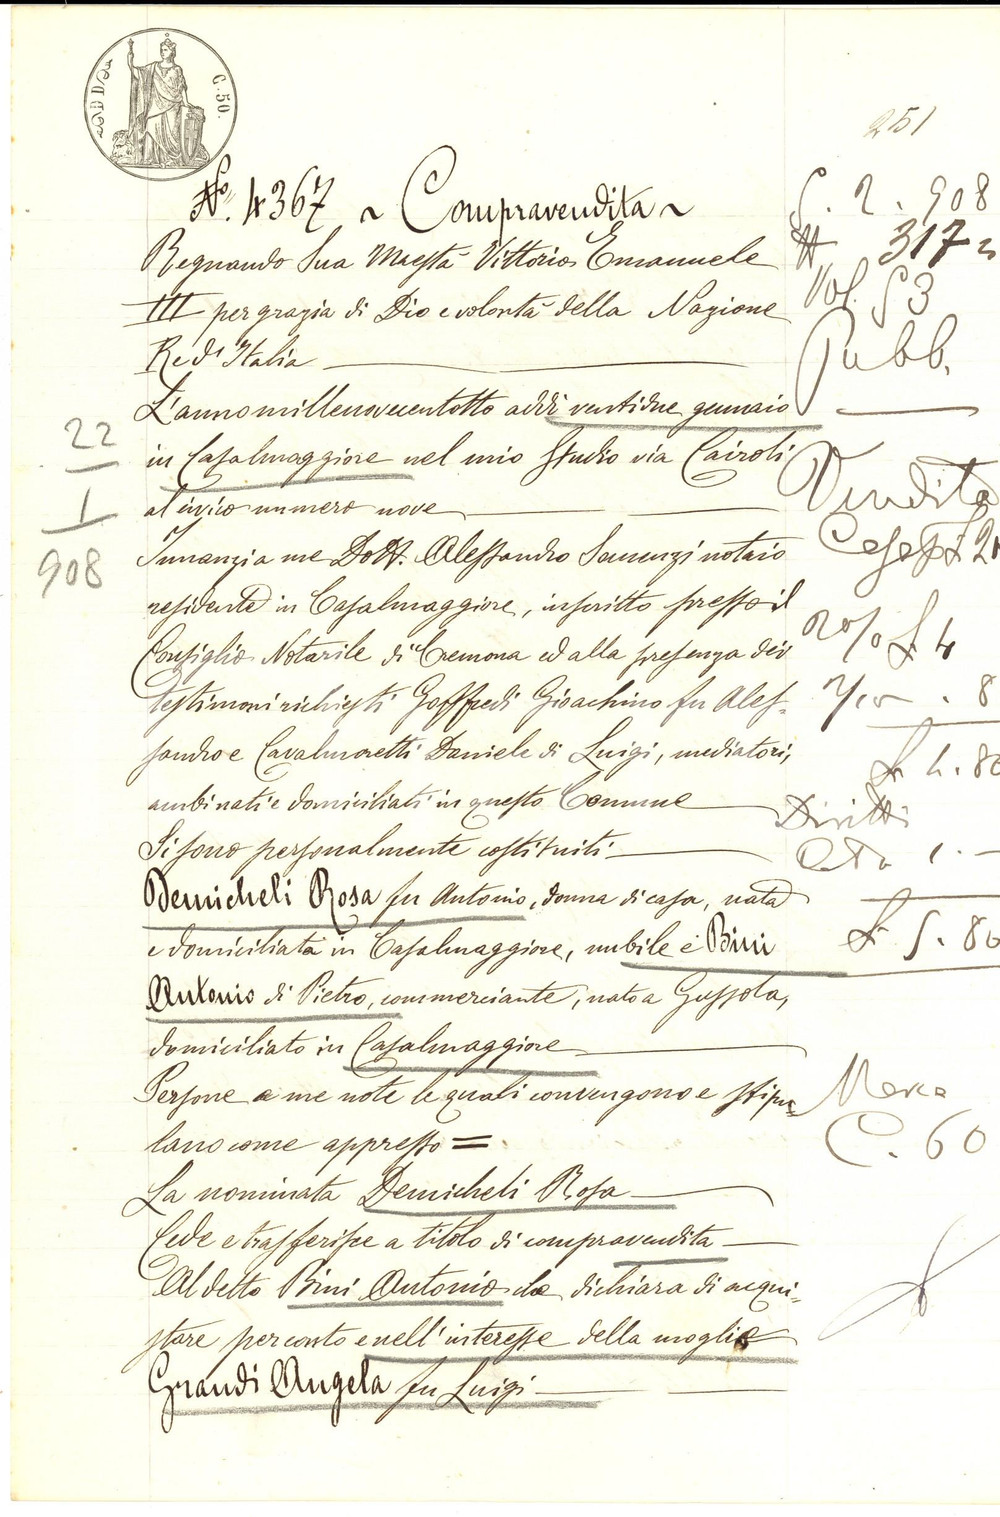 C. 50.
251
No. 4367 ~ Compravendita ~
Regnando Sua Maestà Vittorio Emanuele
III per grazia di Dio e volontà della Nazione
Re d'Italia
L'anno millenovecentotto addì ventidue gennaio
in Casalmaggiore nel mio Studio via Cairoli
al civico numero nove
Innanzi a me Dott. Alessandro notaio
residente in Casalmaggiore, inscritto presso il
Consiglio Notarile di Cremona ed alla presenza dei
testimoni richiesti Goffredi Gioachino fu Ales-
sandro e Cavalmoretti Daniele di Luigi, mediatori,
ambi nati e domiciliati in questo Comune
Si sono personalmente costituiti
Demicheli Rosa fu Antonio, donna di casa, nata
e domiciliata in Casalmaggiore, nubile e Bini
Antonio di Pietro, commerciante, nato a Gussola,
domiciliato in Casalmaggiore
Persone a me note le quali convengono e stipu-
lano come appresso =
La nominata Demicheli Rosa
Cede e trasferisce a titolo di compravendita
Al detto Bini Antonio che dichiara di acqui-
stare per conto e nell'interesse della moglie
Grandi Angela fu Luigi
22
1
908
2. 908
317
Vol. 53
Pubb.
Vendita
4
8
4. 80
Diritti
1. —
5. 80
Marca
C. 60